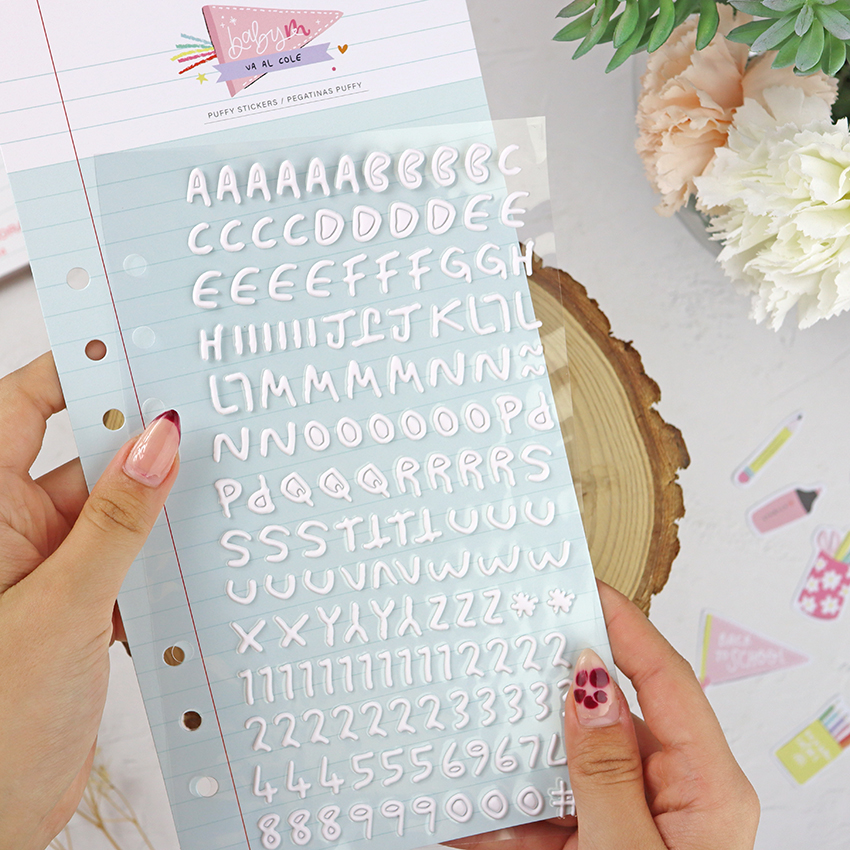 babym
VA AL COLE
PUFFY STICKERS / PEGATINAS PUFFY
AAAAAABBBBC
CCCCDDDDEE
EEEEFFFGGH
HIIIIIIJJJKLLL
LLMMMMNNN~~
NNOOOOOOPP
PPQQQRRRRS
SSSTTTTUUU
UUUVVVWWW
XXYYYYZZZ**
11111111112222
22222223333
44455569677
8889990000#
BACK
to SCHOOL